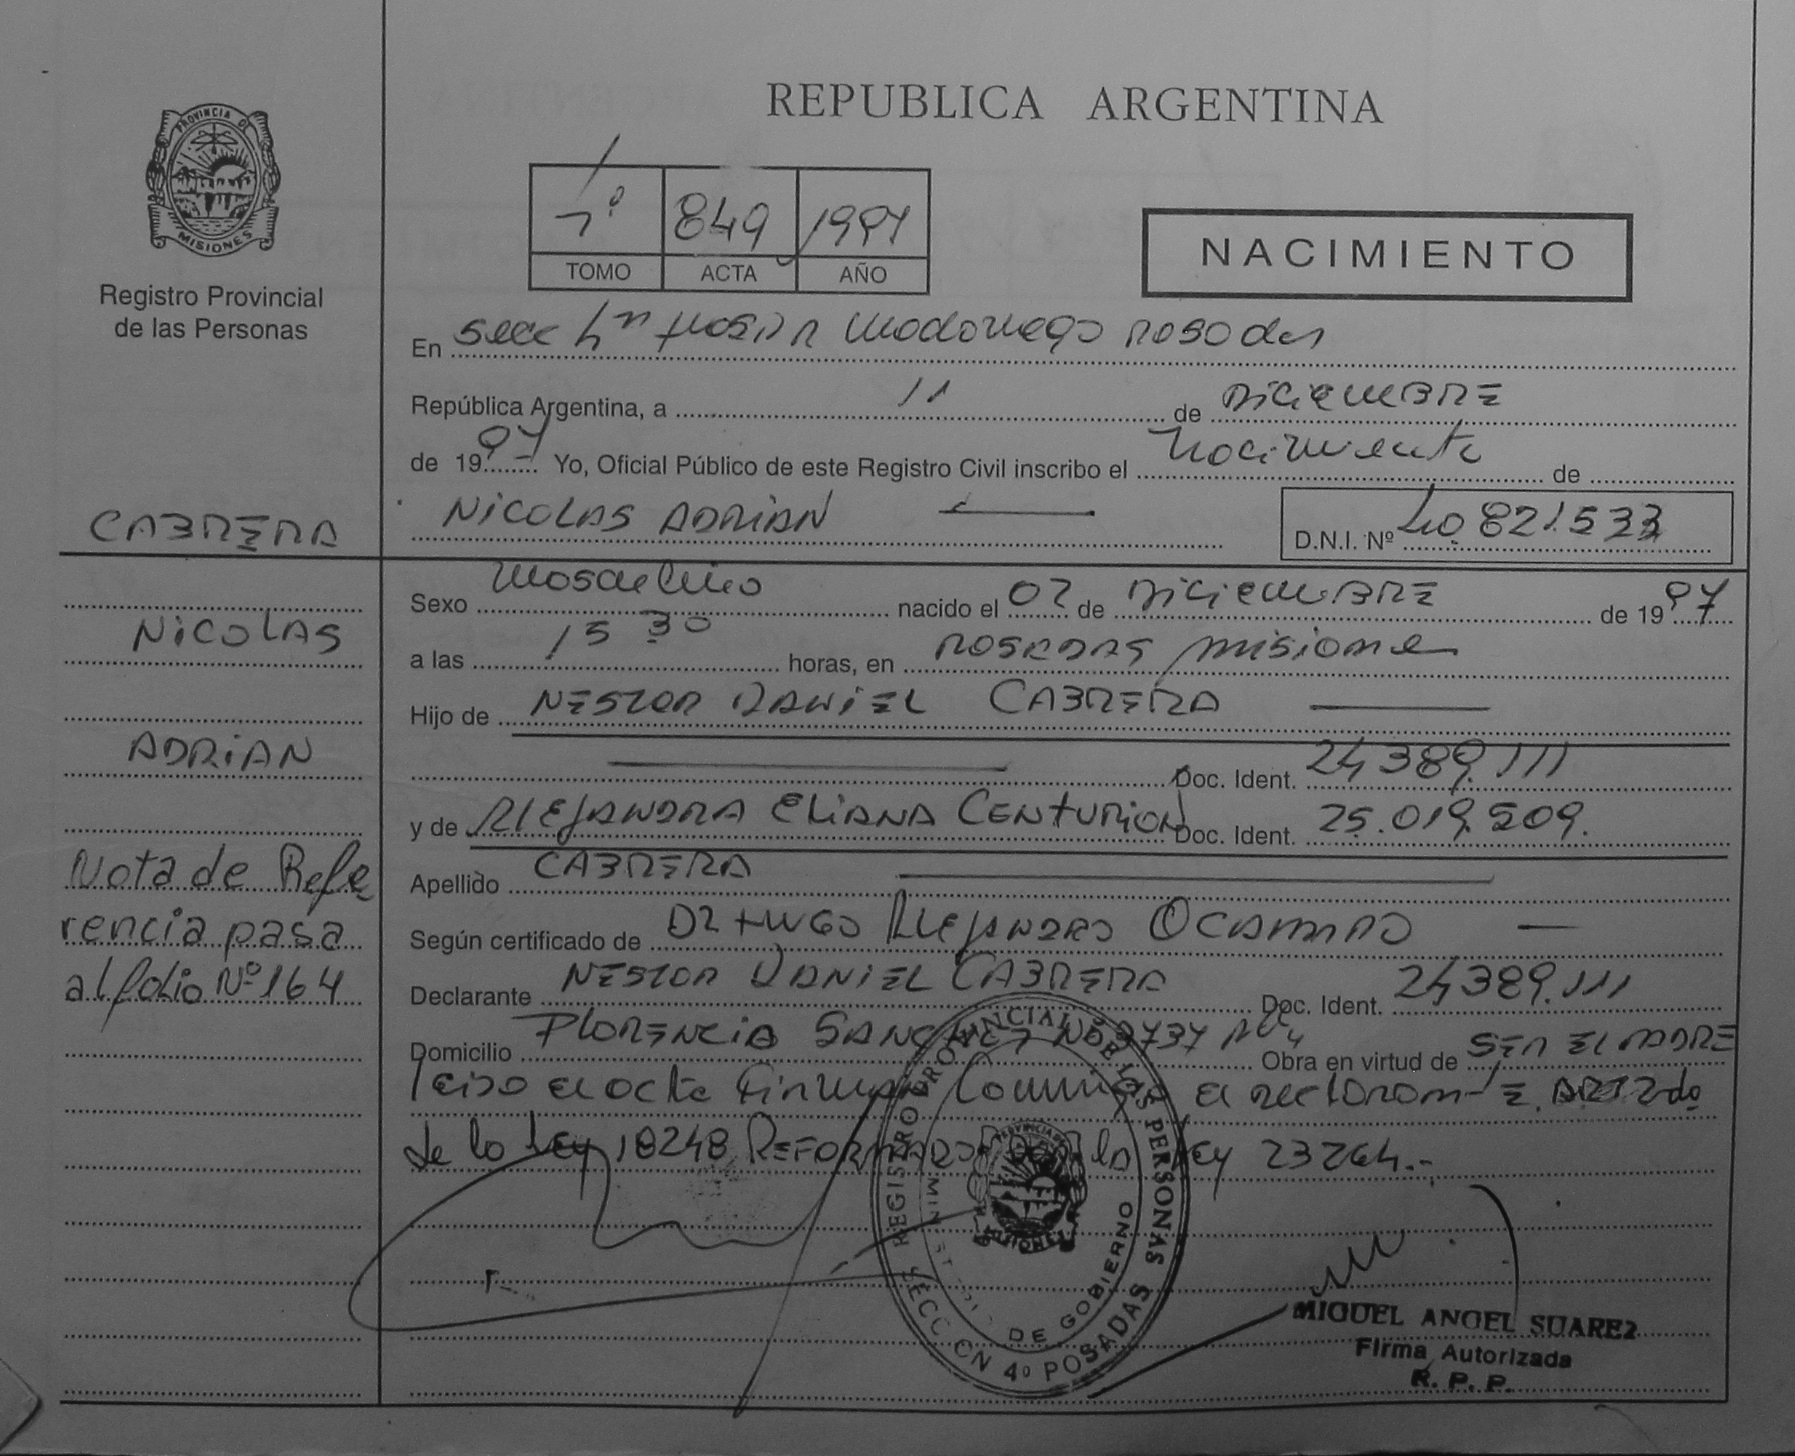 PROVINCIA DE
MISIONES
Registro Provincial
de las Personas
REPUBLICA ARGENTINA
849 1997
TOMO ACTA AÑO
NACIMIENTO
En Secc 4ta
República Argentina, a 11 de DICIEMBRE
de 1997 Yo, Oficial Público de este Registro Civil inscribo el Nacimiento de
NICOLAS ADRIAN D.N.I. Nº 40.821.533
Sexo Masculino nacido el 02 de DICIEMBRE de 1997
a las 15 30 horas, en POSADAS Misiones
Hijo de NESTOR DANIEL CABRERA
Doc. Ident. 24.389.111
y de ALEJANDRA ELIANA CENTURION Doc. Ident. 25.019.509.
Apellido CABRERA
Según certificado de DR HUGO ALEJANDRO OCAMPO
Declarante NESTOR DANIEL CABRERA Doc. Ident. 24.389.111
Domicilio FLORENCIO SANCHEZ Nº 3737 Obra en virtud de SER EL PADRE
Leida el acta Firman Conmigo el declarante ART 2do
de la Ley 18248 REFORMADO POR la Ley 23264.-
CABRERA
NICOLAS
ADRIAN
Nota de Refe
rencia pasa
al folio Nº 164
REGISTRO PROVINCIAL DE LAS PERSONAS
SECCION 4º POSADAS
MINISTERIO DE GOBIERNO
PROVINCIA DE
MISIONES
MIGUEL ANGEL SUAREZ
Firma Autorizada
R. P. P.